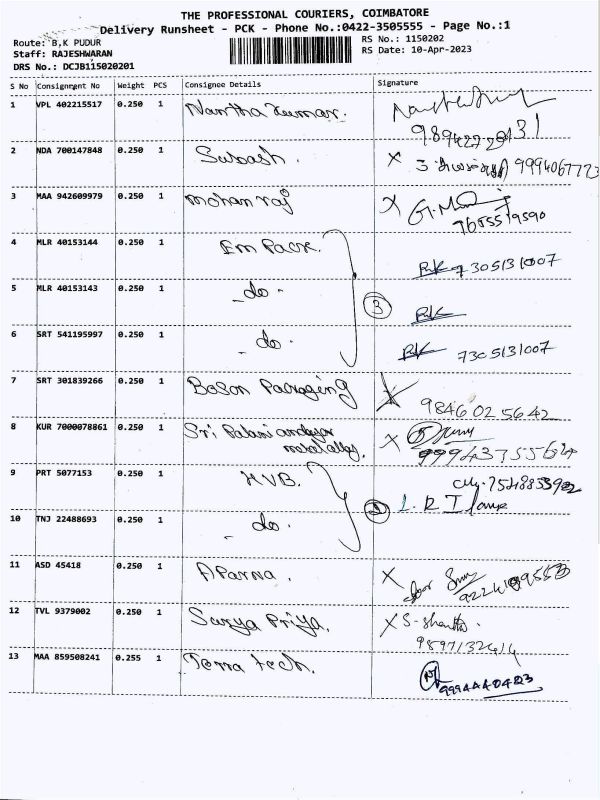 THE PROFESSIONAL COURIERS, COIMBATORE
Delivery Runsheet - PCK - Phone No.:0422-3505555 - Page No.:1
Route: B,K PUDUR
RS No.: 1150202
Staff: RAJESHWARAN
RS Date: 10-Apr-2023
DRS No.: DCJB115020201
S No Consignment No Weight PCS Consignee Details Signature
1 VPL 402215517 0.250 1 Nantha Kumar.
2 NDA 700147848 0.250 1 Subash. X
3 MAA 942609979 0.250 1 mohan raj X
7655519590
4 MLR 40153144 0.250 1 Em Pack. 7305131007
5 MLR 40153143 0.250 1 - do - 3
6 SRT 541195997 0.250 1 - do - 7305131007
7 SRT 301839266 0.250 1 Boson Packaging X
9846025642
8 KUR 7000078861 0.250 1 Sri Palani andavar X
metal alloy.
9 PRT 5077153 0.250 1 KVB.
10 TNJ 22488693 0.250 1 - do -
11 ASD 45418 0.250 1 Aparna. X
12 TVL 9379002 0.250 1 Surya Priya. X
13 MAA 859508241 0.255 1 Terra tech.